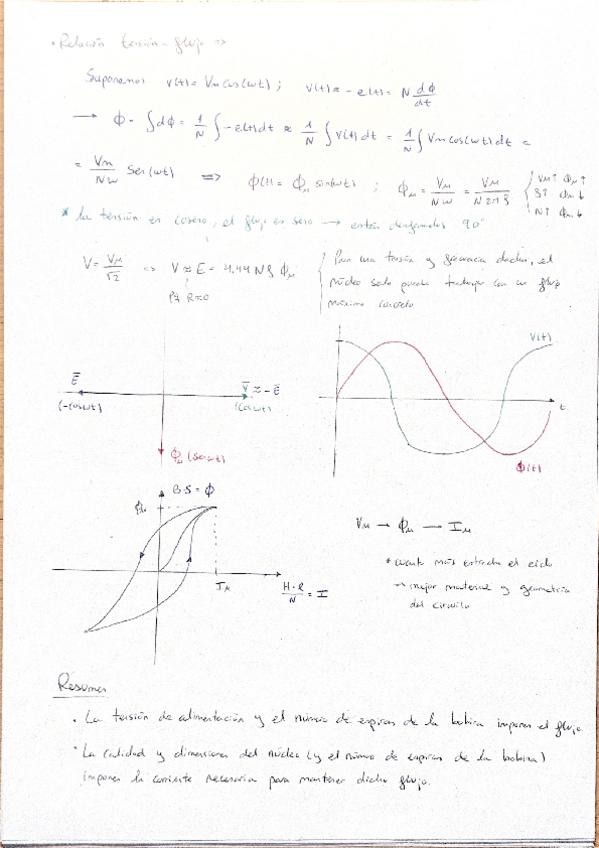 • Relación tensión-flujo ⇒
Suponemos v(t) = Vm cos(ωt) ; v(t) ≈ -e(t) = N dϕ/dt
→ ϕ = ∫dϕ = 1/N ∫-e(t)dt ≈ 1/N ∫v(t)dt = 1/N ∫Vm cos(ωt)dt =
= Vm/Nω sen(ωt) ⇒ ϕ(t) = ϕm sin(ωt) ; ϕm = Vm/Nω = Vm/N2πf { Vm↑ ϕm↑
f↑ ϕm↓
N↑ ϕm↓
* la tensión es coseno, el flujo es seno → están desfasados 90°
V = VM/√2 ⇒ V ≈ E = 4.44 N f ϕM
Pq R≈0
{ Para una tensión y frecuencia dadas, el
núcleo solo puede trabajar con un flujo
máximo concreto
E
(-cosωt)
V ≈ -E
(cosωt)
ϕM (senωt)
V(t)
t
ϕ(t)
B·S = ϕ
ϕM
IM
H·l/N = I
VM → ϕM — IM
* cuanto más estrecho el ciclo
→ mejor material y geometría
del circuito
Resumen
• La tensión de alimentación y el número de espiras de la bobina imponen el flujo.
• La calidad y dimensiones del núcleo (y el número de espiras de la bobina)
imponen la corriente necesaria para mantener dicho flujo.